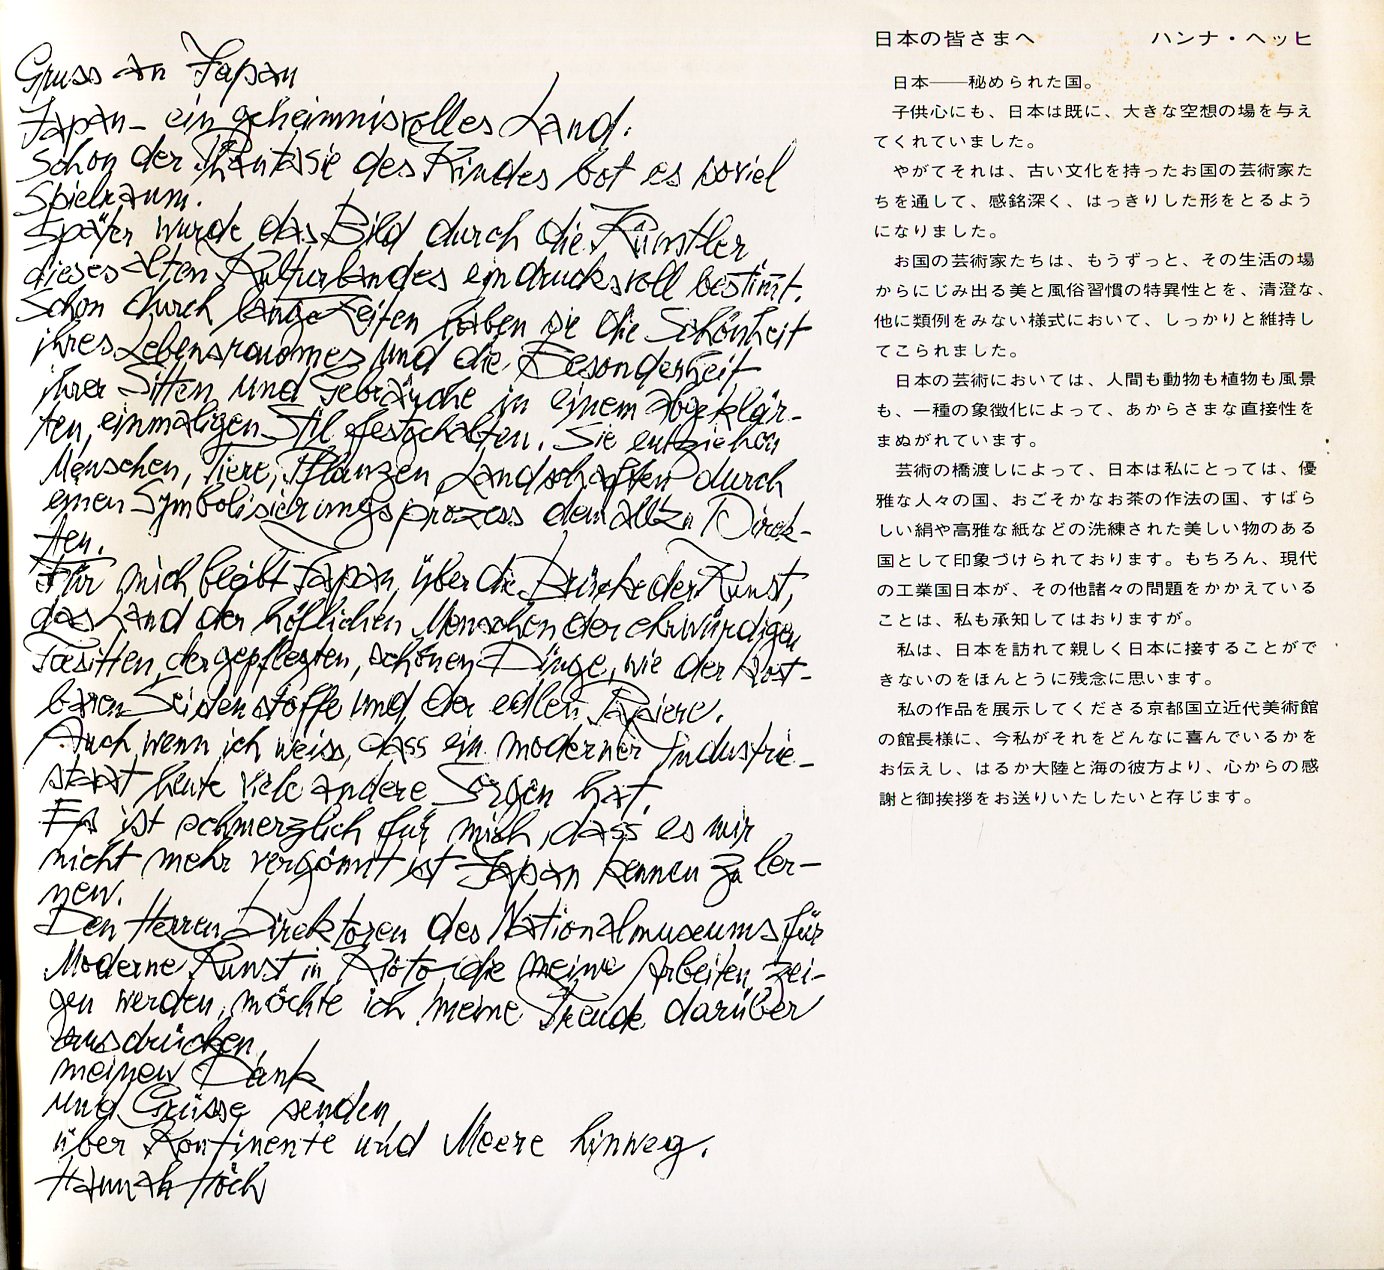 Gruss an Japan
Japan – ein geheimnisvolles Land.
Schon der Phantasie des Kindes bot es soviel
Spielraum.
Später wurde das Bild durch die Künstler
dieses alten Kulturlandes eindrucksvoll bestimt.
Schon durch lange Zeiten haben sie die Schönheit
ihres Lebensraumes und die Besonderheit
ihrer Sitten und Gebräuche in einem abgeklär-
ten, einmaligen Stil festgehalten. Sie entziehen
Menschen, Tiere, Pflanzen Landschaften durch
einen Symbolisierungsprozess dem allzu Direk-
ten.
Für mich bleibt Japan, über die Brücke der Kunst,
das Land der höflichen Menschen der ehrwürdigen
Teesitten, der gepflegten, schönen Dinge, wie der kost-
baren Seidenstoffe und der edlen Papiere.
Auch, wenn ich weiss, dass ein moderner Industrie-
staat heute viele andere Sorgen hat.
Es ist schmerzlich für mich, dass es mir
nicht mehr vergönnt ist Japan kennen zu ler-
nen.
Den Herren Direktoren des Nationalmuseums für
Moderne Kunst in Kioto die meine Arbeiten zei-
gen werden, möchte ich meine Freude darüber
ausdrücken,
meinen Dank
und Grüsse senden
über Kontinente und Meere hinweg.
Hannah Höch
日本の皆さまへ ハンナ・ヘッヒ
日本——秘められた国。
子供心にも、日本は既に、大きな空想の場を与え
てくれていました。
やがてそれは、古い文化を持ったお国の芸術家た
ちを通して、感銘深く、はっきりした形をとるよう
になりました。
お国の芸術家たちは、もうずっと、その生活の場
からにじみ出る美と風俗習慣の特異性とを、清澄な、
他に類例をみない様式において、しっかりと維持し
てこられました。
日本の芸術においては、人間も動物も植物も風景
も、一種の象徴化によって、あからさまな直接性を
まぬがれています。
芸術の橋渡しによって、日本は私にとっては、優
雅な人々の国、おごそかなお茶の作法の国、すばら
しい絹や高雅な紙などの洗練された美しい物のある
国として印象づけられております。もちろん、現代
の工業国日本が、その他諸々の問題をかかえている
ことは、私も承知してはおりますが。
私は、日本を訪れて親しく日本に接することがで
きないのをほんとうに残念に思います。
私の作品を展示してくださる京都国立近代美術館
の館長様に、今私がそれをどんなに喜んでいるかを
お伝えし、はるか大陸と海の彼方より、心からの感
謝と御挨拶をお送りいたしたいと存じます。